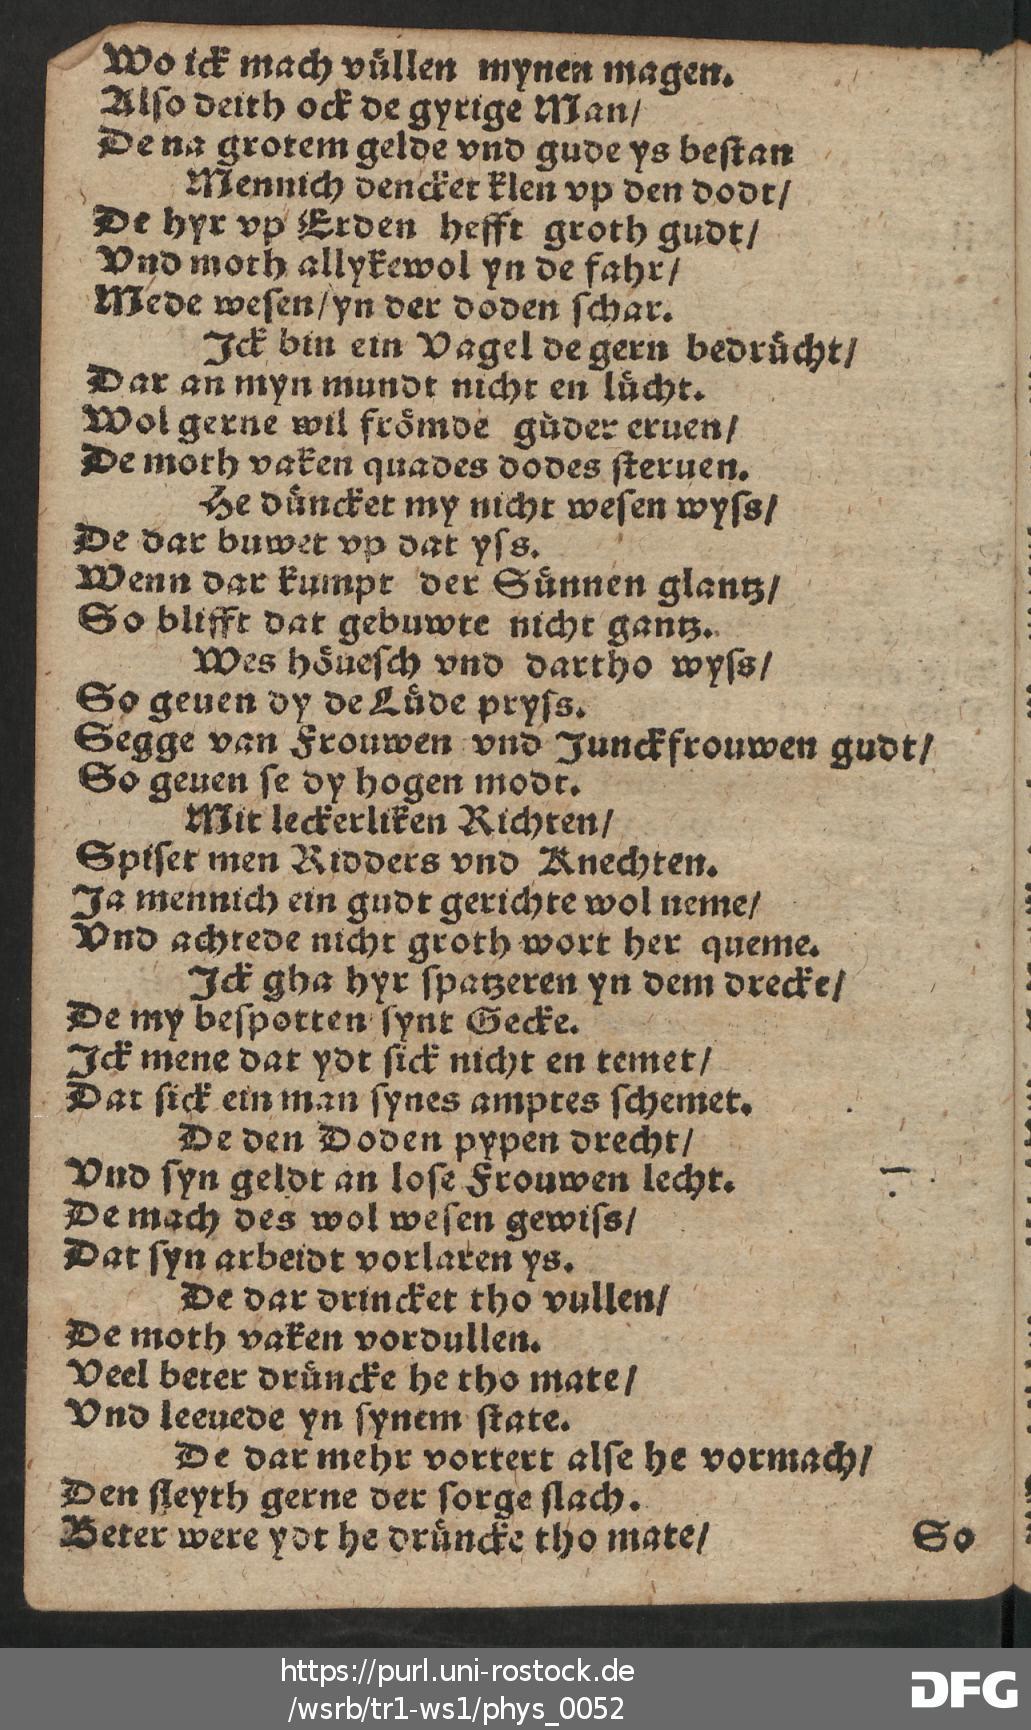 Wo ick mach vůllen mynen magen.
Also deith ock de gyrige Man/
De na grotem gelde vnd gude ys bestan
Mennich dencket klen vp den dodt/
De hyr vp Erden hefft groth gudt/
Vnd moth allykewol yn de fahr/
Mede wesen/yn der doden schar.
Jck bin ein Vagel de gern bedrůcht/
Dar an myn mundt nicht en lůcht.
Wol gerne wil frömde gůder eruen/
De moth vaken quades dodes steruen.
He důncket my nicht wesen wyss/
De dar buwet vp dat yss.
Wenn dar kumpt der Sůnnen glantz/
So blifft dat gebuwte nicht gantz.
Wes höuesch vnd dartho wyss/
So geuen dy de Lůde pryss.
Segge van Frouwen vnd Junckfrouwen gudt/
So geuen se dy hogen modt.
Mit leckerliken Richten/
Spiset men Ridders vnd Knechten.
Ja mennich ein gudt gerichte wol neme/
Vnd achtede nicht groth wort her queme.
Jck gha hyr spatzeren yn dem drecke/
De my bespotten synt Gecke.
Jck mene dat ydt sick nicht en temet/
Dat sick ein man synes amptes schemet.
De den Doden pypen drecht/
Vnd syn geldt an lose Frouwen lecht.
De mach des wol wesen gewiss/
Dat syn arbeidt vorlaren ys.
De dar drincket tho vullen/
De moth vaken vordullen.
Veel beter drůncke he tho mate/
Vnd leeuede yn synem state.
De dar mehr vortert alse he vormach/
Den sleyth gerne der sorge slach.
Beter were ydt he drůncke tho mate/
So
https://purl.uni-rostock.de
/wsrb/tr1-ws1/phys_0052
DFG